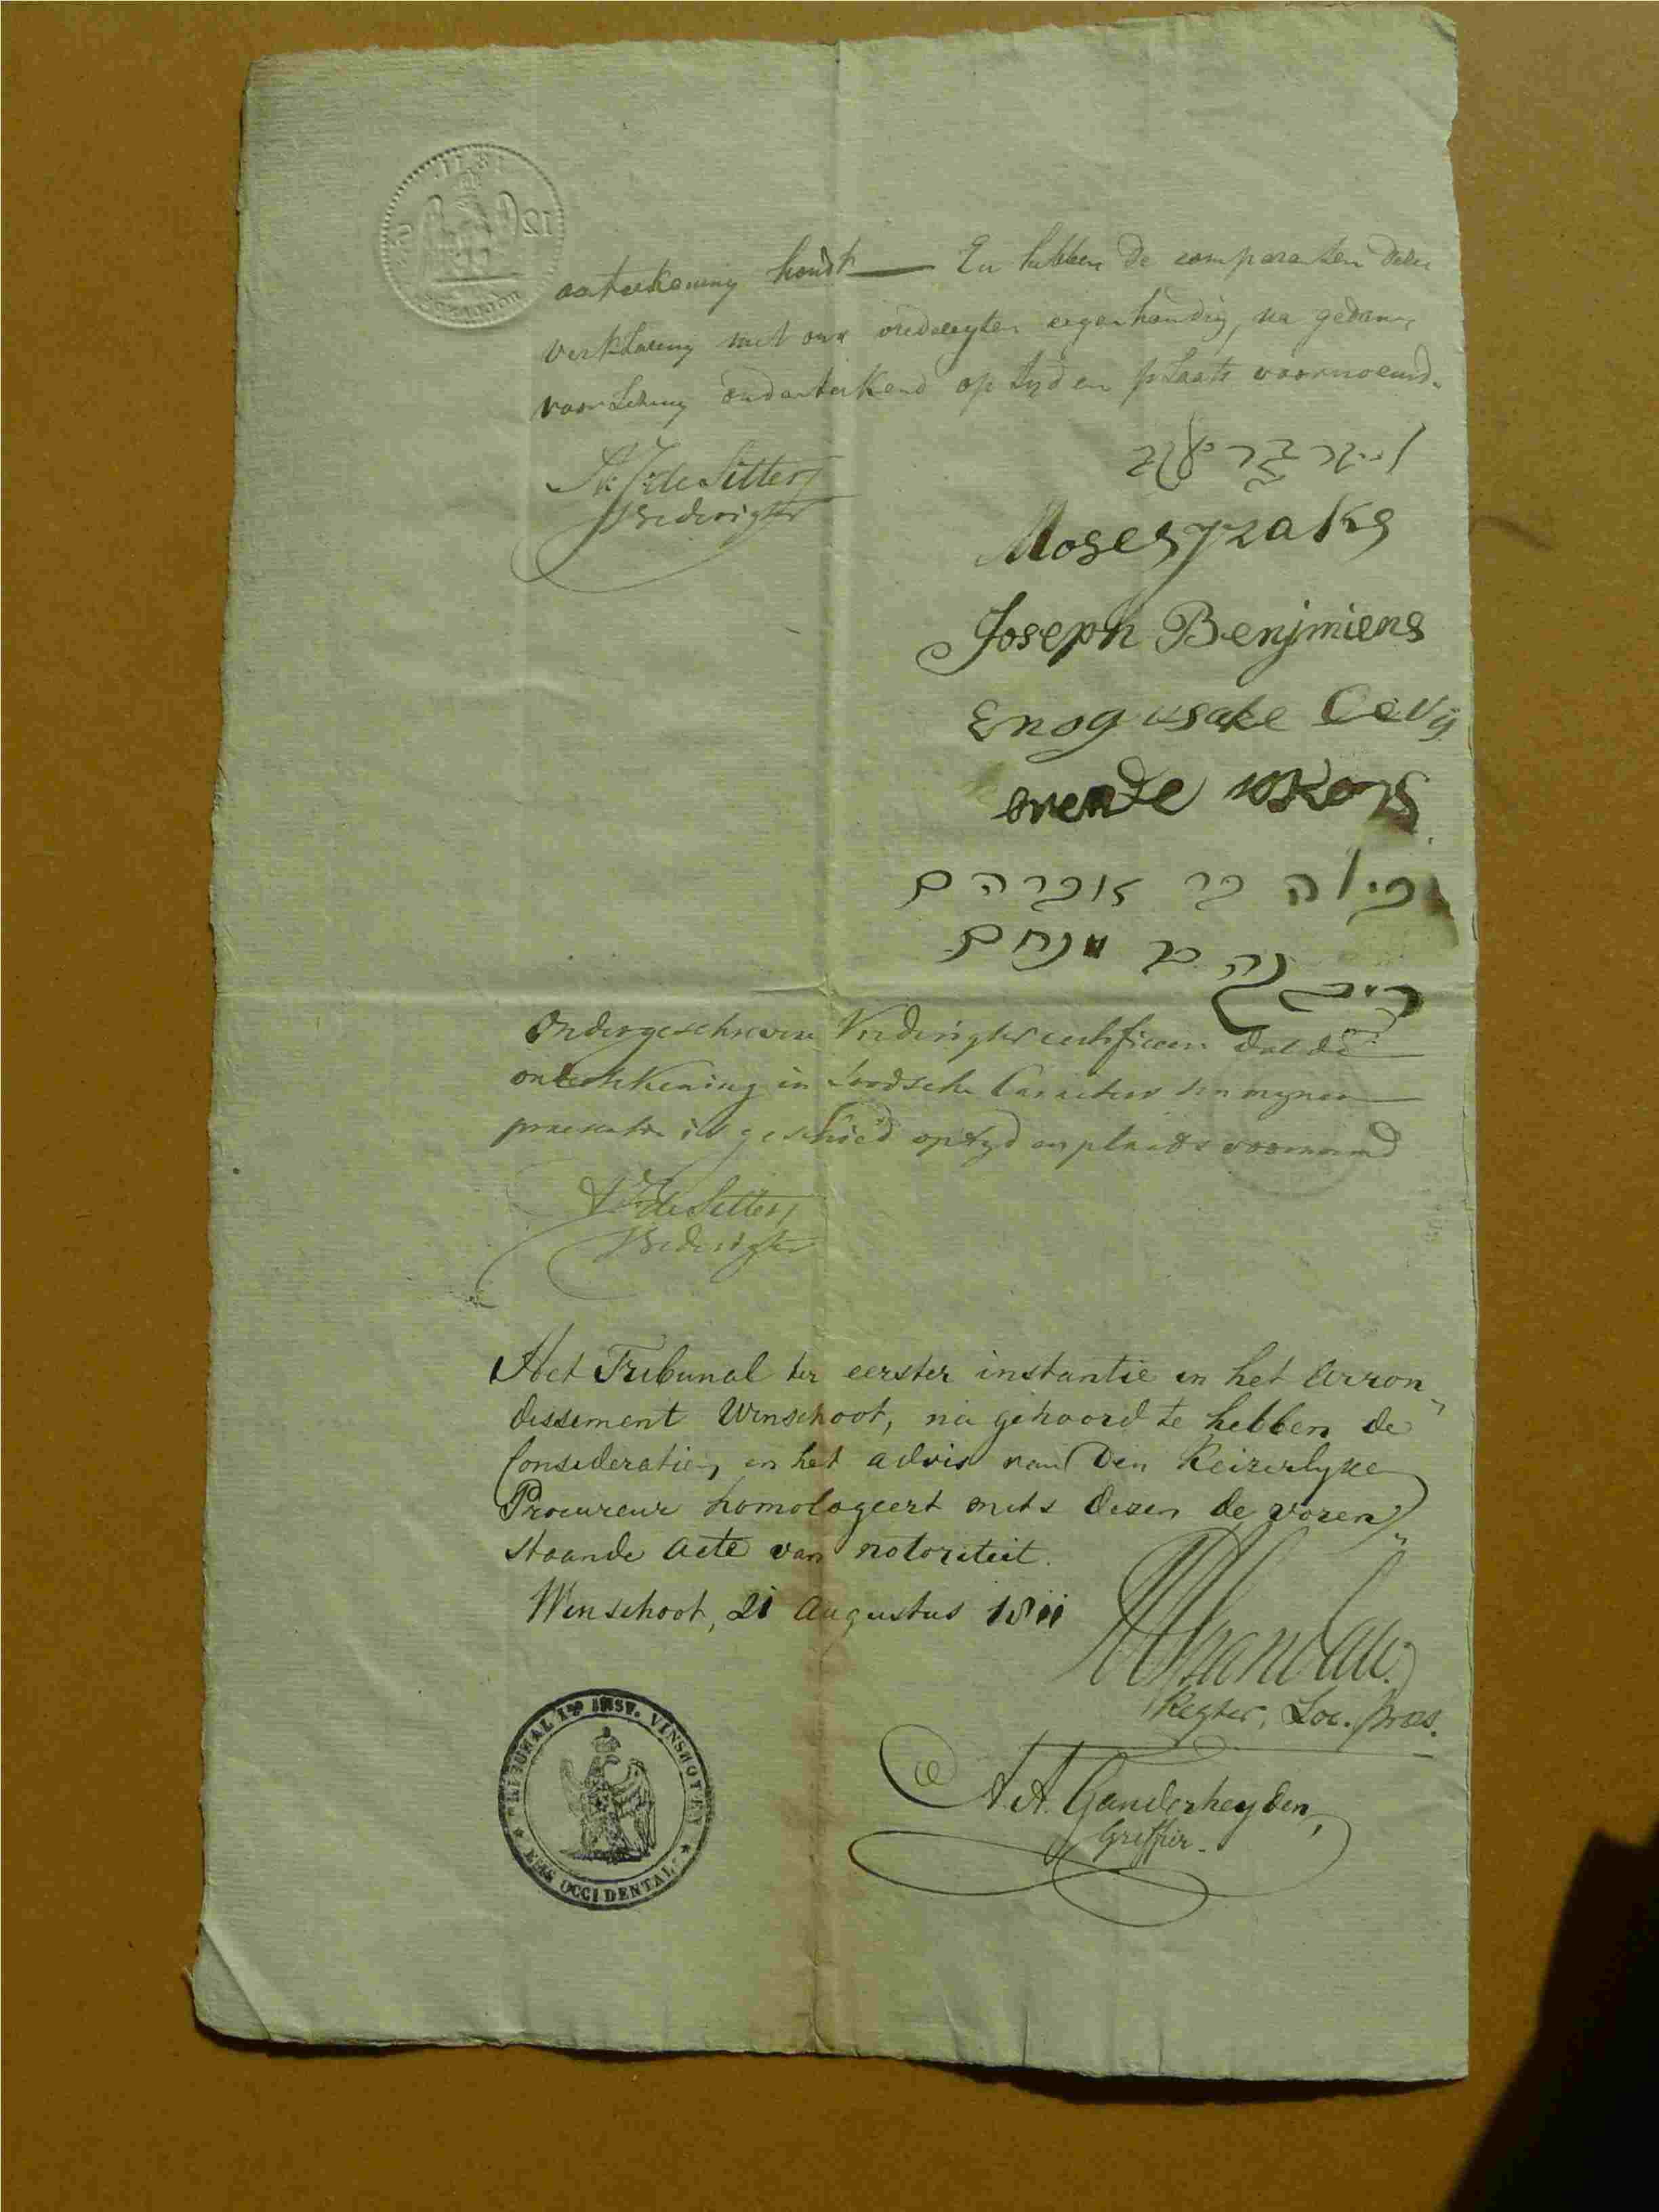 aanteekening houdt — En hebben de comparanten deze
verklaring met ons vrederegter eigenhandig, na gedane
voorlezing onderteekend op tyd en plaats voornoemd.
W: J: de Sitter
Vrederigter
Moses yzaks
Joseph Benjmiens
Enog isake Levij
בר אברהם
בר מנחם
Ondergeschreven Vrederigter certificeer dat de
onderteekening in Joodsche Caracters ten mynen
praesentie is geschied op tyd en plaats voornoemd
W: J: de Sitter
Vrederigter
Het Tribunal ter eerster instantie in het Arron„
dissement Winschoot, na gehoord te hebben de
Consideratien, en het advis van Den Keizerlyke
Procureur homologeert mits dezen de voren„
staande acte van notoriteit.
Winschoot, 21 Augustus 1811
Regter, Loc. Praes.
A. A. Ganderheyden,
Griffier.
TRIBUNAL 1RE INST. VINSHOTEN
* EMS OCCIDENTAL *